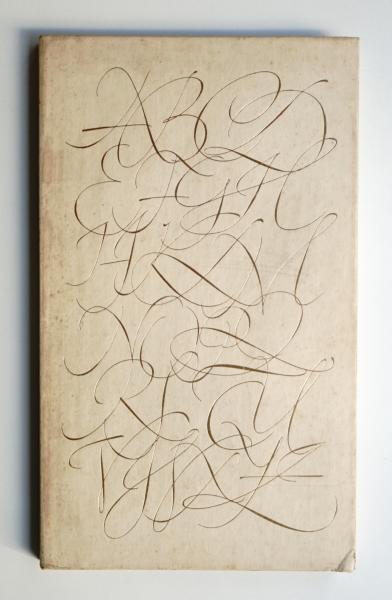 A B C D
E F G H
I J K L M
N O P Q
R S T U
V W X Y Z